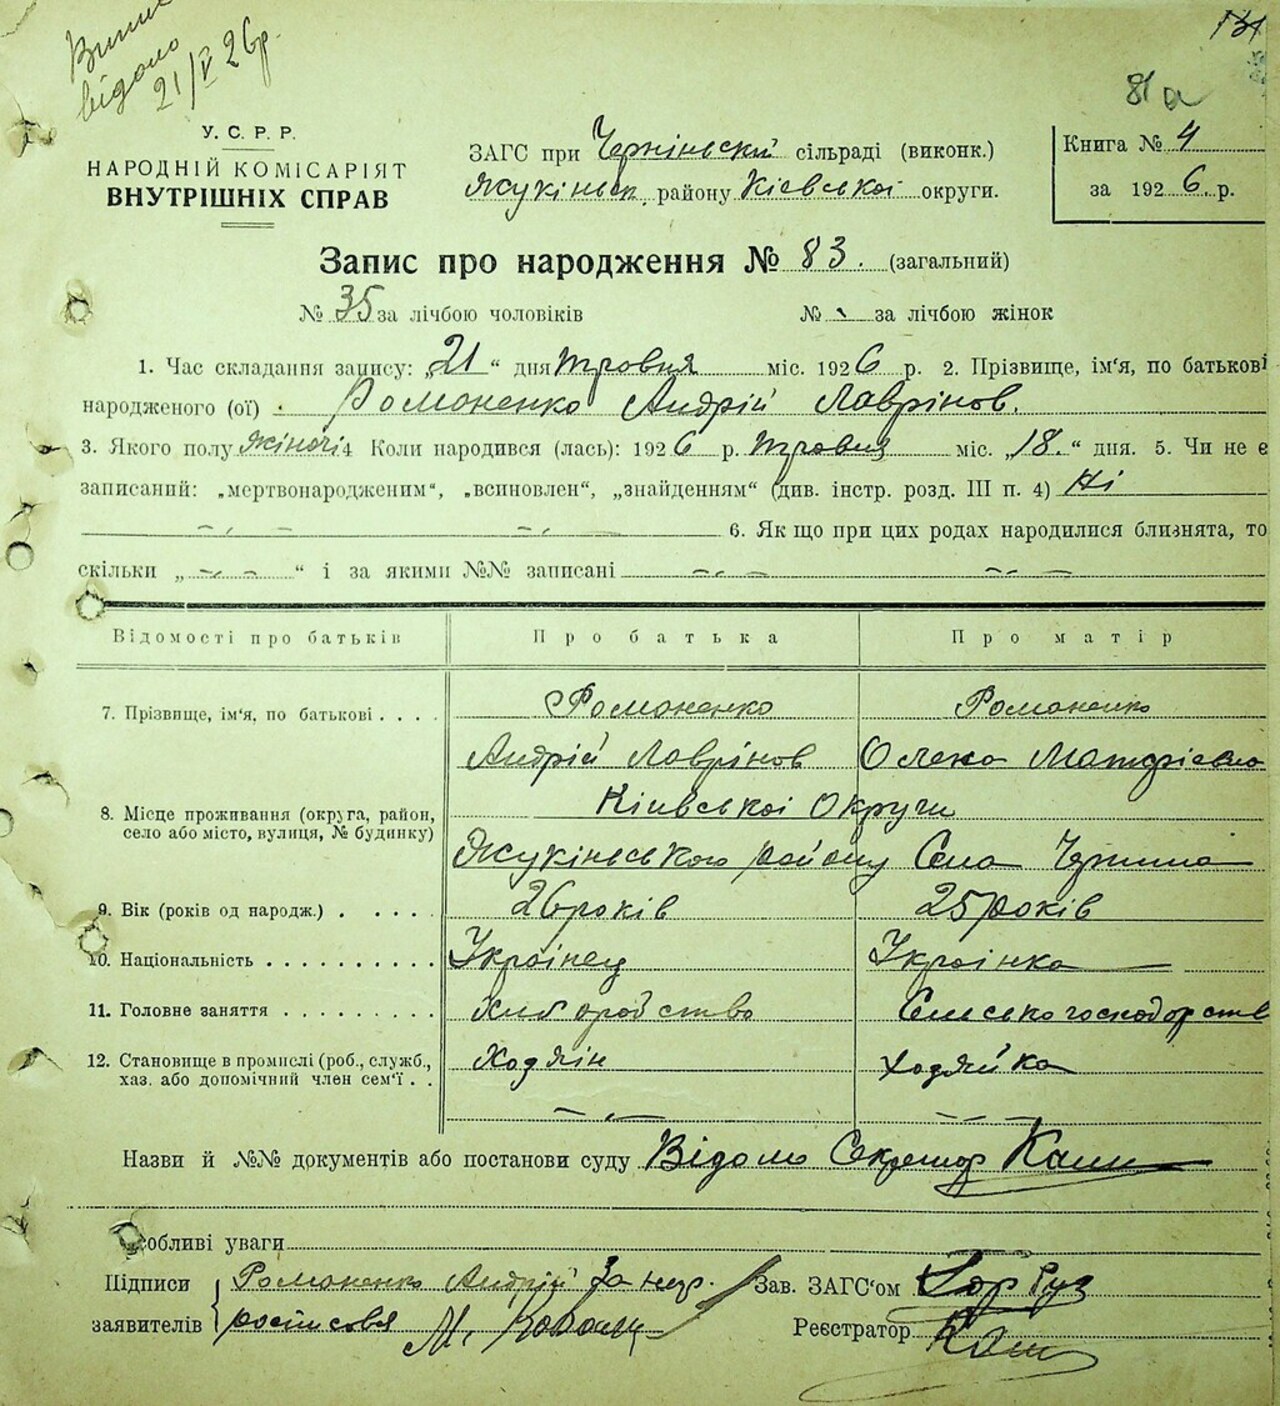 відомо
21/V 26р.
131
81а
У. С. Р. Р.
НАРОДНІЙ КОМІСАРІЯТ
ВНУТРІШНІХ СПРАВ
ЗАГС при сільраді (виконк.)
району Кіевськоі округи.
Книга № 4
за 1926 р.
Запис про народження № 83. (загальний)
№ 35 за лічбою чоловіків
№ за лічбою жінок
1. Час складання запису: „21“ дня травня міс. 1926 р. 2. Прізвище, ім'я, по батькові
народженого (ої) Романенко Андрій Лаврінов.
3. Якого полу жіночі 4 Коли народився (лась): 1926 р. травня міс. „18.“ дня. 5. Чи не є
записаний: „мертвонародженим“, „всиновлен“, „знайденням“ (див. інстр. розд. III п. 4) Ні
6. Як що при цих родах народилися близнята, то
скільки „ “ і за якими №№ записані
Відомості про батьків
Про батька
Про матір
7. Прізвище, ім'я, по батькові . . . .
Романенко
Романенко
Андрій Лаврінов
Олена
8. Місце проживання (округа, район, село або місто, вулиця, № будинку)
Киівськоі Округи
району Села
9. Вік (років од народж.) . . . . .
26 років
25 років
10. Національність . . . . . . . . . .
Украінец
Украінка
11. Головне заняття . . . . . . . . .
12. Становище в промислі (роб., служб.,
хаз. або допомічний член сем'ї . .
Ходяін
Ходяйка
Назви й №№ документів або постанови суду Відомо Секретар
Особливі уваги
Підписи
заявителів
Романенко Андрій За нер.
Зав. ЗАГС'ом
М.
Реєстратор